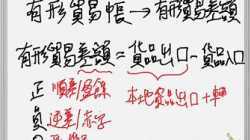 有形貿易帳→有形貿易差額
有形貿易差額=貨品出口-貨品入口
正 順差/盈餘
本地貨品出口+轉
負 逆差/赤字